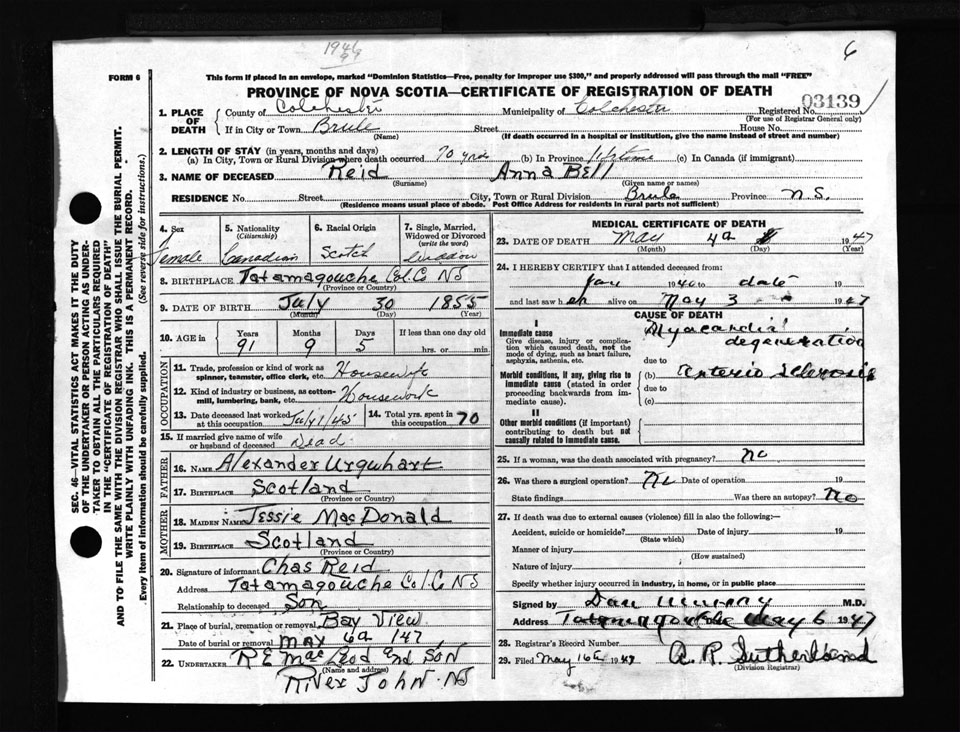 1946
99
6
FORM 6
This form if placed in an envelope, marked "Dominion Statistics—Free, penalty for improper use $300," and properly addressed will pass through the mail "FREE"
PROVINCE OF NOVA SCOTIA—CERTIFICATE OF REGISTRATION OF DEATH
03139
1. PLACE OF DEATH
County of Colchester Municipality of Colchester Registered No.
(For use of Registrar General only)
If in City or Town Brule Street House No.
(Name) (If death occurred in a hospital or institution, give the name instead of street and number)
2. LENGTH OF STAY (in years, months and days)
(a) In City, Town or Rural Division where death occurred 70 yrs (b) In Province lifetime (c) In Canada (if immigrant)
3. NAME OF DECEASED Reid Anna Bell
(Surname) (Given name or names)
RESIDENCE No. Street City, Town or Rural Division Brule Province N.S.
(Residence means usual place of abode. Post Office Address for residents in rural parts not sufficient)
4. Sex 5. Nationality 6. Racial Origin 7. Single, Married, Widowed or Divorced
(Citizenship) (write the word)
Female Canadian Scotch
8. BIRTHPLACE Tatamagouche Col. Co NS
(Province or Country)
9. DATE OF BIRTH July 30 1855
(Month) (Day) (Year)
10. AGE in Years Months Days If less than one day old
91 9 5 hrs. or min.
OCCUPATION
11. Trade, profession or kind of work as spinner, teamster, office clerk, etc. Housewife
12. Kind of industry or business, as cotton-mill, lumbering, bank, etc. Housework
13. Date deceased last worked at this occupation July 1/45 14. Total yrs. spent in this occupation 70
15. If married give name of wife or husband of deceased Dead
FATHER
16. NAME Alexander Urquhart
17. BIRTHPLACE Scotland
(Province or Country)
MOTHER
18. MAIDEN NAME Jessie MacDonald
19. BIRTHPLACE Scotland
(Province or Country)
20. Signature of informant Chas Reid
Address Tatamagouche Col. C NS
Relationship to deceased Son
21. Place of burial, cremation or removal Bay View
Date of burial or removal May 6th 1947
22. UNDERTAKER R E MacLeod and Son
(Name and address)
River John NS
MEDICAL CERTIFICATE OF DEATH
23. DATE OF DEATH May 4th 1947
(Month) (Day) (Year)
24. I HEREBY CERTIFY that I attended deceased from:
Jan 1940 to date 19
and last saw her alive on May 3 1947
CAUSE OF DEATH
I
Immediate cause
Give disease, injury or complication which caused death, not the mode of dying, such as heart failure, asphyxia, asthenia, etc.
Myocardial degeneration
due to
Morbid conditions, if any, giving rise to immediate cause (stated in order proceeding backwards from immediate cause).
(b) Arterio Sclerosis
due to
(c)
II
Other morbid conditions (if important) contributing to death but not causally related to immediate cause.
25. If a woman, was the death associated with pregnancy? no
26. Was there a surgical operation? No Date of operation 19
State findings Was there an autopsy? No
27. If death was due to external causes (violence) fill in also the following:—
Accident, suicide or homicide? Date of injury 19
(State which)
Manner of injury
(How sustained)
Nature of injury
Specify whether injury occurred in industry, in home, or in public place
Signed by Dan Murray M.D.
Address Tatamagouche May 6 1947
28. Registrar's Record Number
29. Filed May 16th 1947 A. R. Sutherland
(Division Registrar)
SEC. 46—VITAL STATISTICS ACT MAKES IT THE DUTY
OF THE UNDERTAKER OR PERSON ACTING AS UNDER-
TAKER TO OBTAIN ALL THE PARTICULARS REQUIRED
IN THE "CERTIFICATE OF REGISTRATION OF DEATH"
AND TO FILE THE SAME WITH THE DIVISION REGISTRAR WHO SHALL ISSUE THE BURIAL PERMIT.
WRITE PLAINLY WITH UNFADING INK. THIS IS A PERMANENT RECORD.
Every item of information should be carefully supplied. (See reverse side for instructions.)